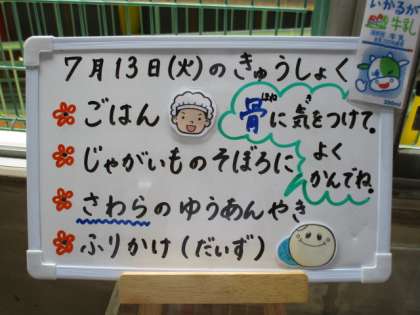 7月13日(火)のきゅうしょく
ごはん
じゃがいものそぼろに
さわらのゆうあんやき
ふりかけ(だいず)
ほね き
骨に気をつけて。
よく
かんでね。
いかるが
牛乳
200ml